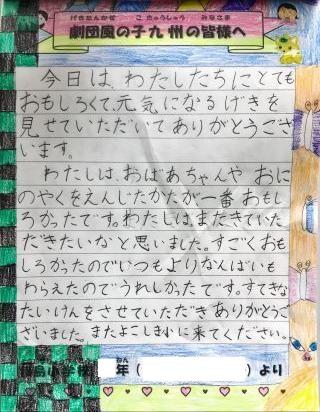 げきだんかぜ こ きゅうしゅう みなさま
劇団風の子九州の皆様へ
今日は、わたしたちにとても
おもしろくて、元気になるげきを
見せていただいてありがとうござ
います。
わたしは、おばあちゃんや おに
のやくをえんじたかたが一番 おもし
ろかったです。わたしは、またきていた
だきたいなと思いました。すごくおも
しろかったのでいつもよりなんばいも
わらえたのでうれしかったです。すてきな
たいけんをさせていただき ありがとうご
ざいました。またよこしま小に来てください。
島小学校
ねん
年 ( ) より